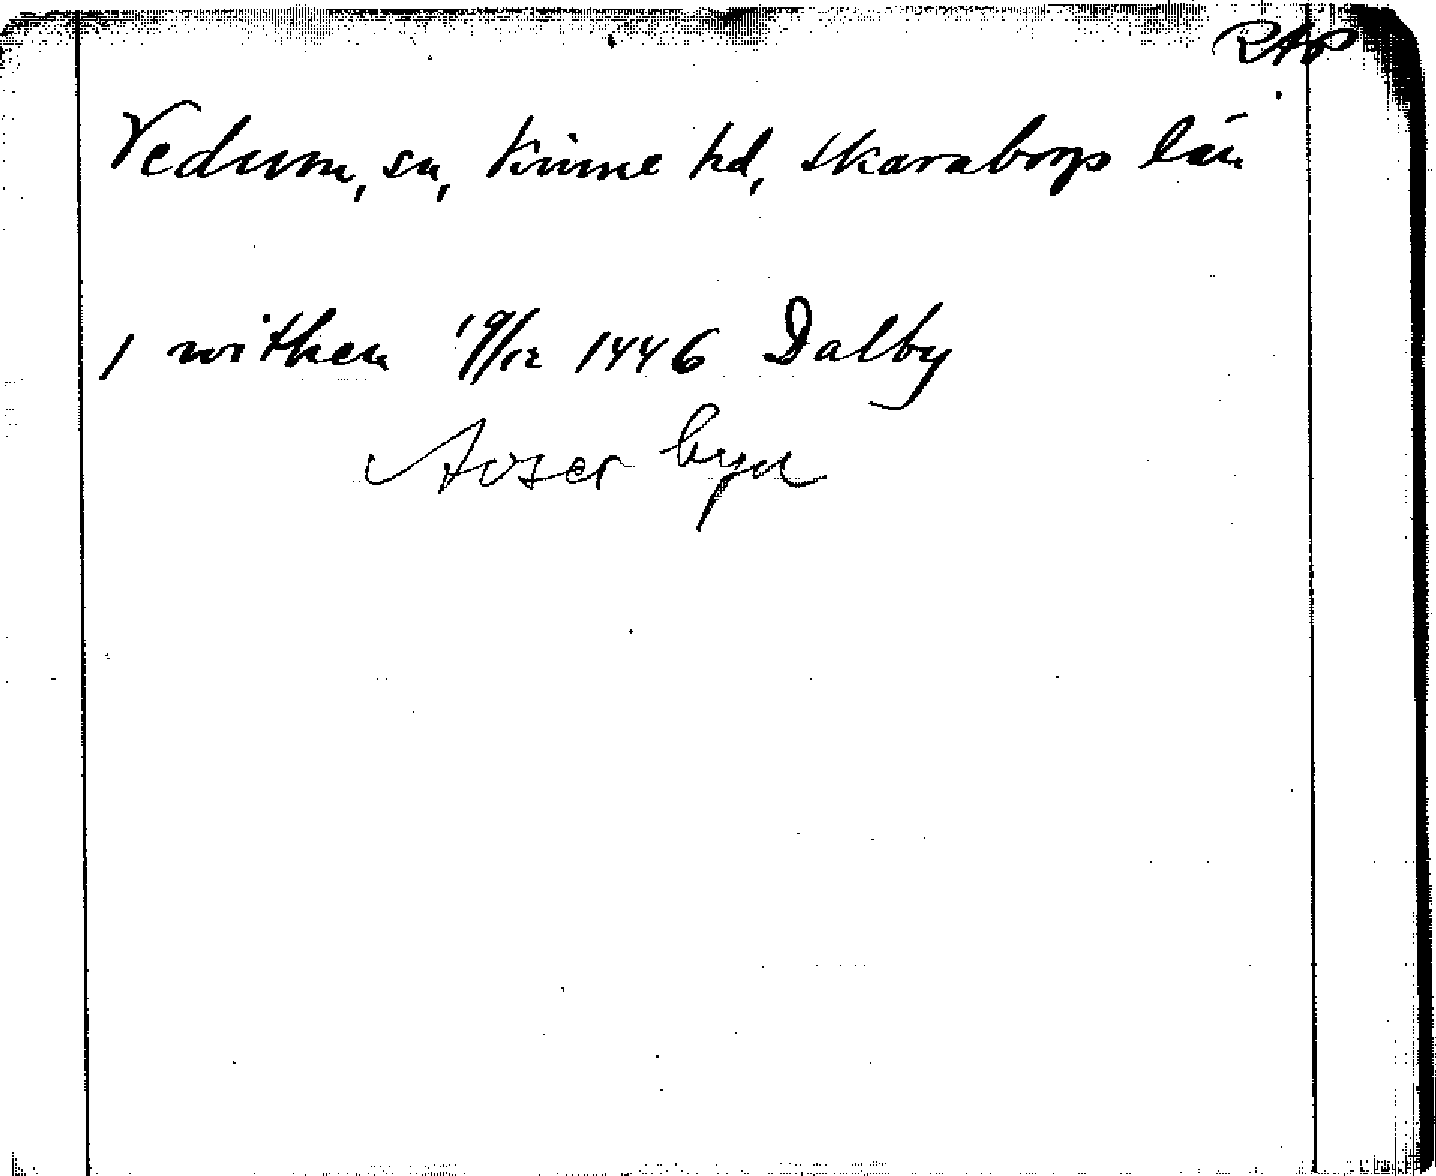 RAP
Vedum, sn, Kinne hd, Skaraborgs län
i withen 19/12 1446 Dalby
Aoser byn